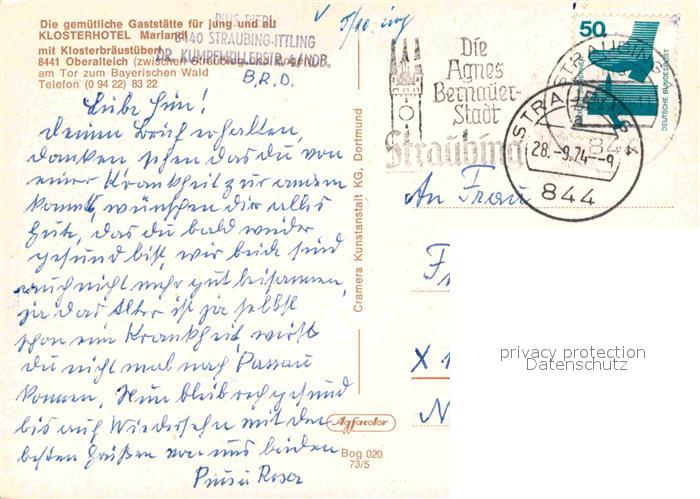 Die gemütliche Gaststätte für jung und alt
KLOSTERHOTEL Mariandl
mit Klosterbräustüberl
8441 Oberalteich (zwischen Straubing und Bogen)
am Tor zum Bayerischen Wald
Telefon (0 94 22) 83 22
PIUS
8440 STRAUBING-ITTLING
B.R.D.
Die
Agnes
Bernauer-
Stadt
Straubing
50
DEUTSCHE BUNDESPOST
STRAUBING 4
28.-9.74--9
844
Liebe
Deinen Brief erhalten,
danken das du von
einer Krankheit zur andern
kommst, wünschen dir alles
Gute, das du bald wieder
gesund bist, wir beide sind
auch nicht mehr gut beisammen,
ja das Alter ist ja selbst
schon ein Krankheit, wirst
du nicht mal nach Passau
kommen, Nun bleib recht gesund
bis auf Wiedersehn mit den
besten Grüßen von uns beiden
Pius u Rosa
An Frau
F
X 1
N
Cramers Kunstanstalt KG, Dortmund
Agfacolor
Bog 020
73/5
privacy protection
Datenschutz